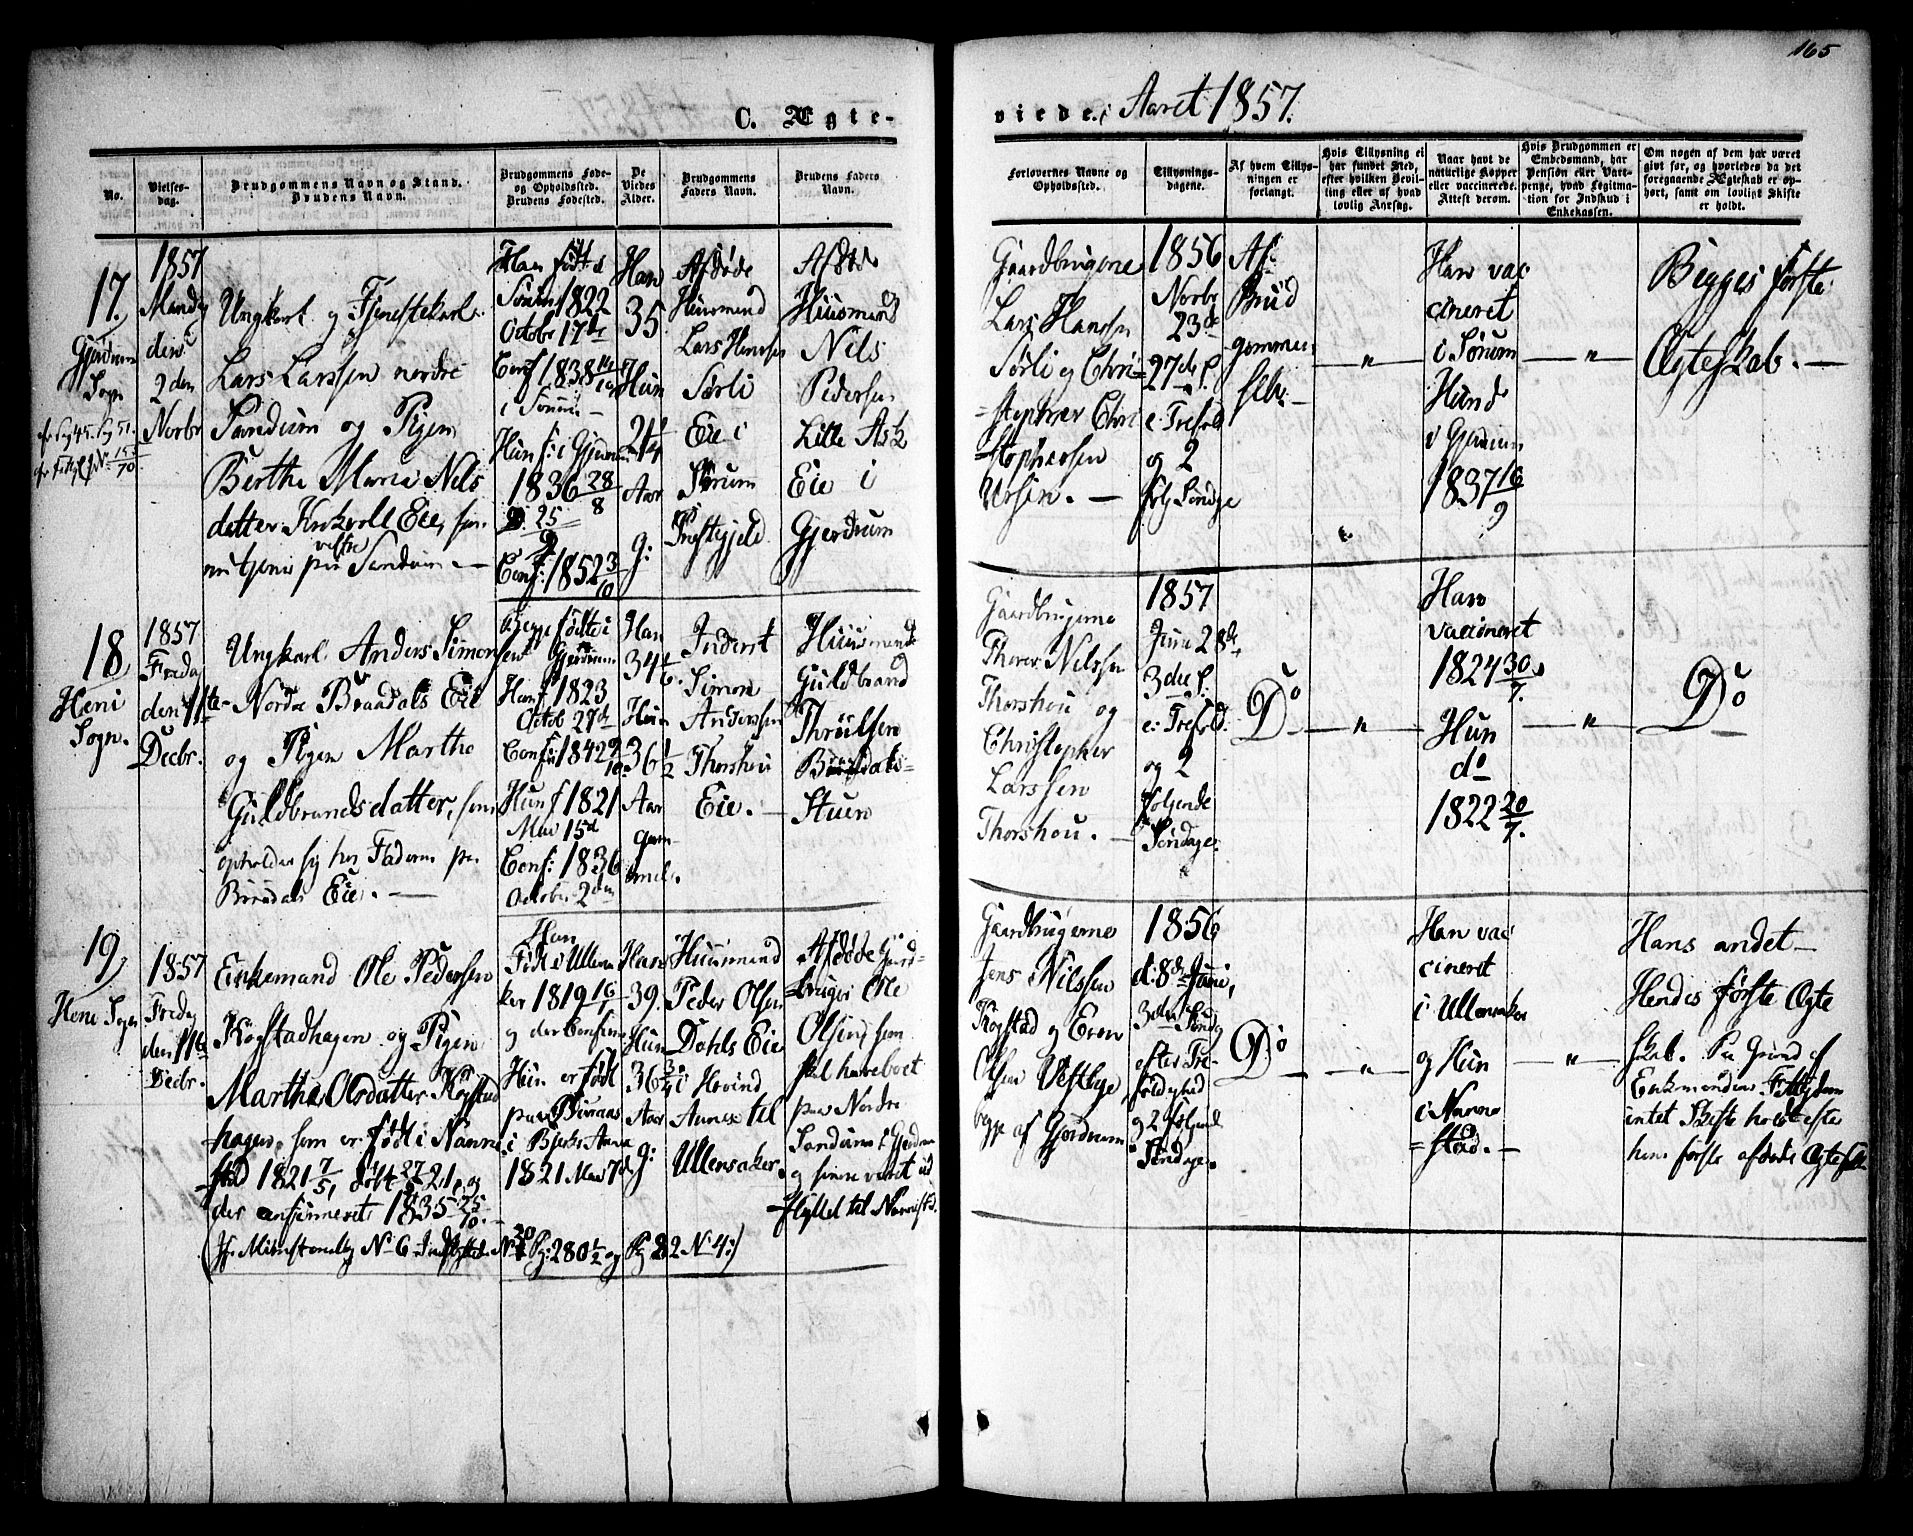 165
C. Ægte-
viede i Aaret 1857.
No.
Vielses-
dag.
Brudgommens Navn og Stand.
Brudens Navn.
Brudgommens Føde-
og Opholdssted.
Brudens Fødested.
De
Viedes
Alder.
Brudgommens
Faders Navn.
Brudens Faders
Navn.
Forlovernes Navne og
Opholdssted.
Tillysnings-
dagene.
Af hvem Tillys-
ningen er
forlangt.
Hvis Tillysning ei
har fundet Sted,
efter hvilken Bevil-
ling eller af hvad
lovlig Aarsag.
Naar havt de
naturlige Kopper
eller vaccinerede.
Attest derom.
Hvis Brudgommen er
Embedsmand, har
Pension eller Vart-
penge, hvad Legitima-
tion for Indskud i
Enkekassen.
Om nogen af dem har været
gift før, og hvorledes da det
foregaaende Ægteskab er op-
hørt, samt om lovligt Skifte
er holdt.
17.
Gjerdrum
Sogn
1857
Mandag
den
2den
Novbr
Ungkarl og Tjenestekarl
Lars Larssen nordre
Sandum og Pigen
Berthe Maria Nels
datter Kukroll Eie, som
nu tjener paa vestre Sandum. —
Han født i
Sørum 1822
October 17de
Conf 1838 14/10
i Sørum —
Hun f: i Gjerdrum
1836 28/8
D. 25/9
Conf: 1852 3/10
Han
35
Hun
21 1/4
Aar
g:
Afdøde
Huusmand
Lars Hanssen
Sørli
Eie i
Sørum
Præstegjeld
Afdøde
Huusmand
Nils
Pedersen
Lille Ask
Eie i
Gjerdrum
Gaardbrugerne
Lars Hansen
Sørli og Chri=
=stopher Chri
=stophersen
Ursin. —
1856
Novbr
23de
27de S.
e: Trefold
og 2
følg Søndge
Af
Brud
gommen
selv. —
— " —
Han vac
cineret
i Sørum
Hund
i Gjerdrum
1837 16/9
— " —
Begges første
Ægteskab. —
18
Heni
Sogn.
1857
Fredag
den 11te
Decbr.
Ungkarl Anders Simon
sen
Nordre Braadals Eie
og Pigen Marthe
Guldbrandsdatter, som
opholder sig hos Faderen paa
Braadals Eie. —
Begge fødte i
Gjerdrum
Han f 1823
Octob 27de
Conf: 1842 2/10
Hun f 1821
Mai 15d
Conf: 1836
October 2den
Han
34 1/6
Hun
36 1/2
Aar
gam-
mel.
Inderst
Simon
Anderssen
Thorshou
Eie. —
Huusmand
Guldbrand
Thrulsen
Braadals-
Stuen
Gaardbrugerne
Thorer Nilssen
Thorshou og
Christopher
Larssen
Thorshou. —
1857
Juni 28de
3die S.
e: Trefold.
og 2
følgende
Søndage.
Do
— " —
Han
vaccineret
1824 30/7.
Hun
do
1822 20/7.
— " —
Do
19
Heni Sogn
1857
Fredag
den 11te
Decbr.
Enkemand Ole Pedersen
Kogstadhagen og Pigen
Marthe Olsdatter Kogstad
hagen, som er født i Nanne
stad 1821 7/5, døbt 27/5 21, og
der confirmeret 1835 25/10. —
Han
Født i Ullensa
ker 1819 16/1
og der Confirm
Hun er født
paa Buraas
i Bjerke Annex
1821 Mai 7d
Han
39.
Hun
36 3/4
Aar
g:
Huusmand
Peder Olsen
Dahls Eie
i Hovind
Annex til
Ullensaker.
Afdøde Gaard-
bruger Ole
Olsen, som
skal have boet
paa Nordre
Sandum i Gjerdrum
og siden været ud
flyttet til Nannestd.
Gaardbrugerne
Jens Nilssen
Kogstad og Even
Olsen Vestbye,
begge af Gjerdrum
1856
d: 8de Juni,
3die Søndg
efter Tre-
foldighed
og 2 følgende
Søndage.
Do
— " —
Han vac
cineret
i Ullensaker
og Hun
i Nanne
=stad. —
— " —
Hans andet —
Hendes første Ægte
skab. Paa Grund af
Enkemandens Fattigdom
intet Skifte holdt efter
hans første afdøde Ægtefælle